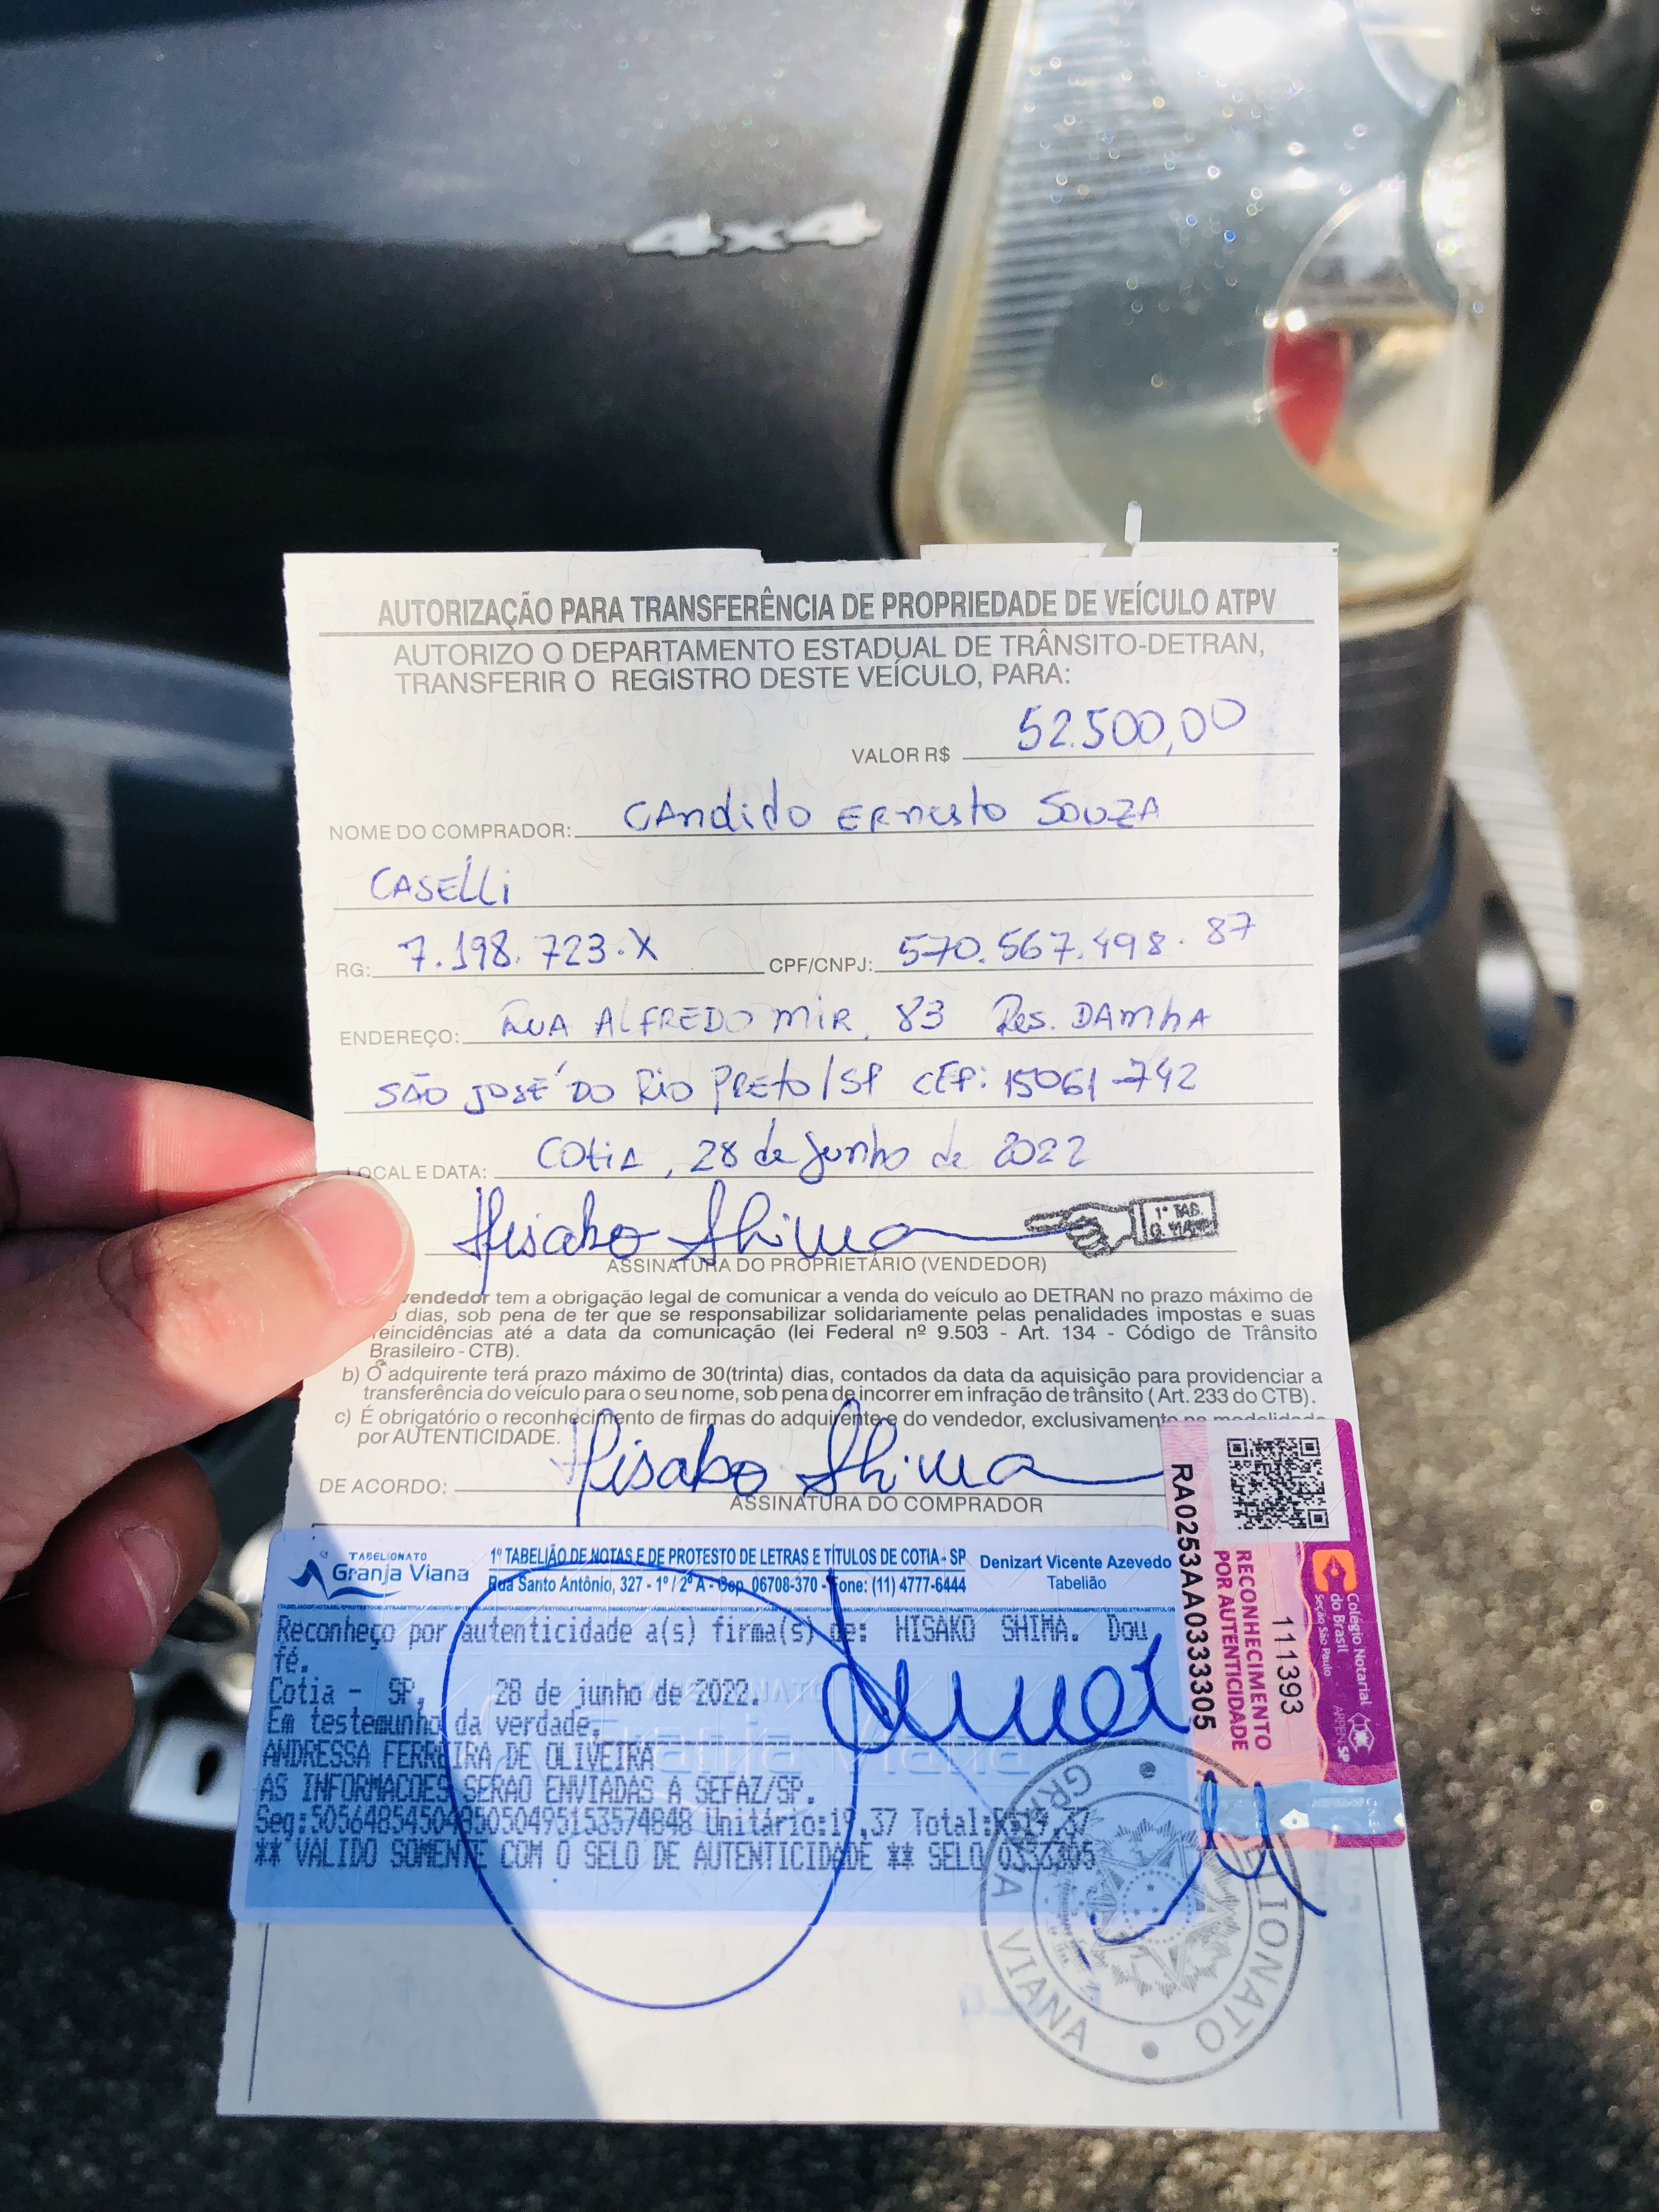 4x4
AUTORIZAÇÃO PARA TRANSFERÊNCIA DE PROPRIEDADE DE VEÍCULO ATPV
AUTORIZO O DEPARTAMENTO ESTADUAL DE TRÂNSITO-DETRAN,
TRANSFERIR O REGISTRO DESTE VEÍCULO, PARA:
VALOR R$ 52.500,00
NOME DO COMPRADOR: CAndido ERnesto SOUZA
CASElli
RG: 7.198.723.X CPF/CNPJ: 570.567.498.87
ENDEREÇO: RUA ALFREDO MIR, 83 Res. DAmhA
SÃO JOSÉ DO Rio PRETO/SP CEP: 15061-742
LOCAL E DATA: COtiA, 28 de Junho de 2022
Hisako Shima
1º TAB.
G. VIANA
ASSINATURA DO PROPRIETÁRIO (VENDEDOR)
vendedor tem a obrigação legal de comunicar a venda do veículo ao DETRAN no prazo máximo de
dias, sob pena de ter que se responsabilizar solidariamente pelas penalidades impostas e suas
reincidências até a data da comunicação (lei Federal nº 9.503 - Art. 134 - Código de Trânsito
Brasileiro - CTB).
b) O adquirente terá prazo máximo de 30(trinta) dias, contados da data da aquisição para providenciar a
transferência do veículo para o seu nome, sob pena de incorrer em infração de trânsito ( Art. 233 do CTB).
c) É obrigatório o reconhecimento de firmas do adquirente e do vendedor, exclusivamente na modalidade
por AUTENTICIDADE.
DE ACORDO: Hisako Shima
ASSINATURA DO COMPRADOR
TABELIONATO
Granja Viana
1º TABELIÃO DE NOTAS E DE PROTESTO DE LETRAS E TÍTULOS DE COTIA - SP
Rua Santo Antônio, 327 - 1º / 2º A - Cep. 06708-370 - Fone: (11) 4777-6444
Denizart Vicente Azevedo
Tabelião
Reconheço por autenticidade a(s) firma(s) de: HISAKO SHIMA. Dou
fé.
Cotia - SP, 28 de junho de 2022.
Em testemunho da verdade,
ANDRESSA FERREIRA DE OLIVEIRA
AS INFORMACOES SERAO ENVIADAS A SEFAZ/SP.
Unitário:19,37 Total:R$19,37
** VALIDO SOMENTE COM O SELO DE AUTENTICIDADE ** SELO
RA0253AA0333305
RECONHECIMENTO
POR AUTENTICIDADE
111393
Colégio Notarial
do Brasil
Seção São Paulo
ARPEN SP
TABELIONATO
GRANJA VIANA